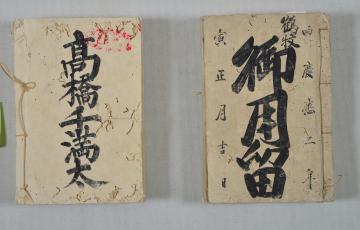 高橋千満太
慶應二年
御用留
寅正月吉日